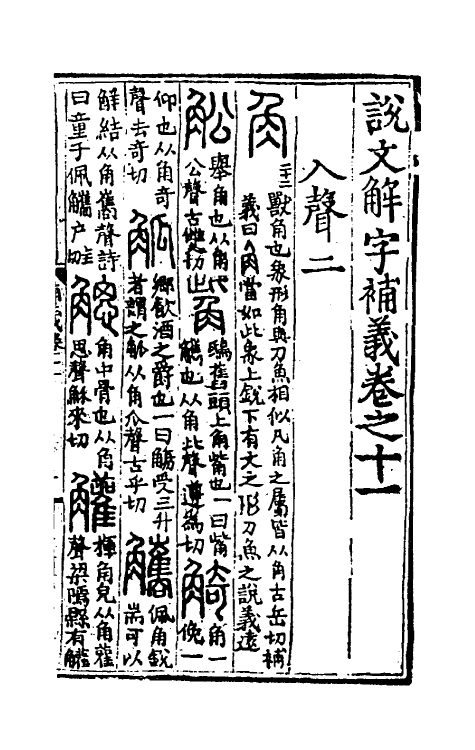 說文解字補義卷之十一
入聲二
角
獸角也象形角與刀魚相似凡角之屬皆从角古岳切補
義曰角當如此象上銳下有文之形刀魚之說義遠
舉角也从角
公聲古雙切
觜
鴟舊頭上角觜也一曰觜
觿也从角此聲遵為切
觭
角一
俛一
仰也从角奇
聲去奇切
觚
鄉飲酒之爵也一曰觴受三升
者謂之觚从角瓜聲古乎切
觿
佩角銳
耑可以
解結从角巂聲詩
曰童子佩觿户圭切
䚡
角中骨也从角
思聲穌來切
揮角皃从角雚
聲梁隱縣有